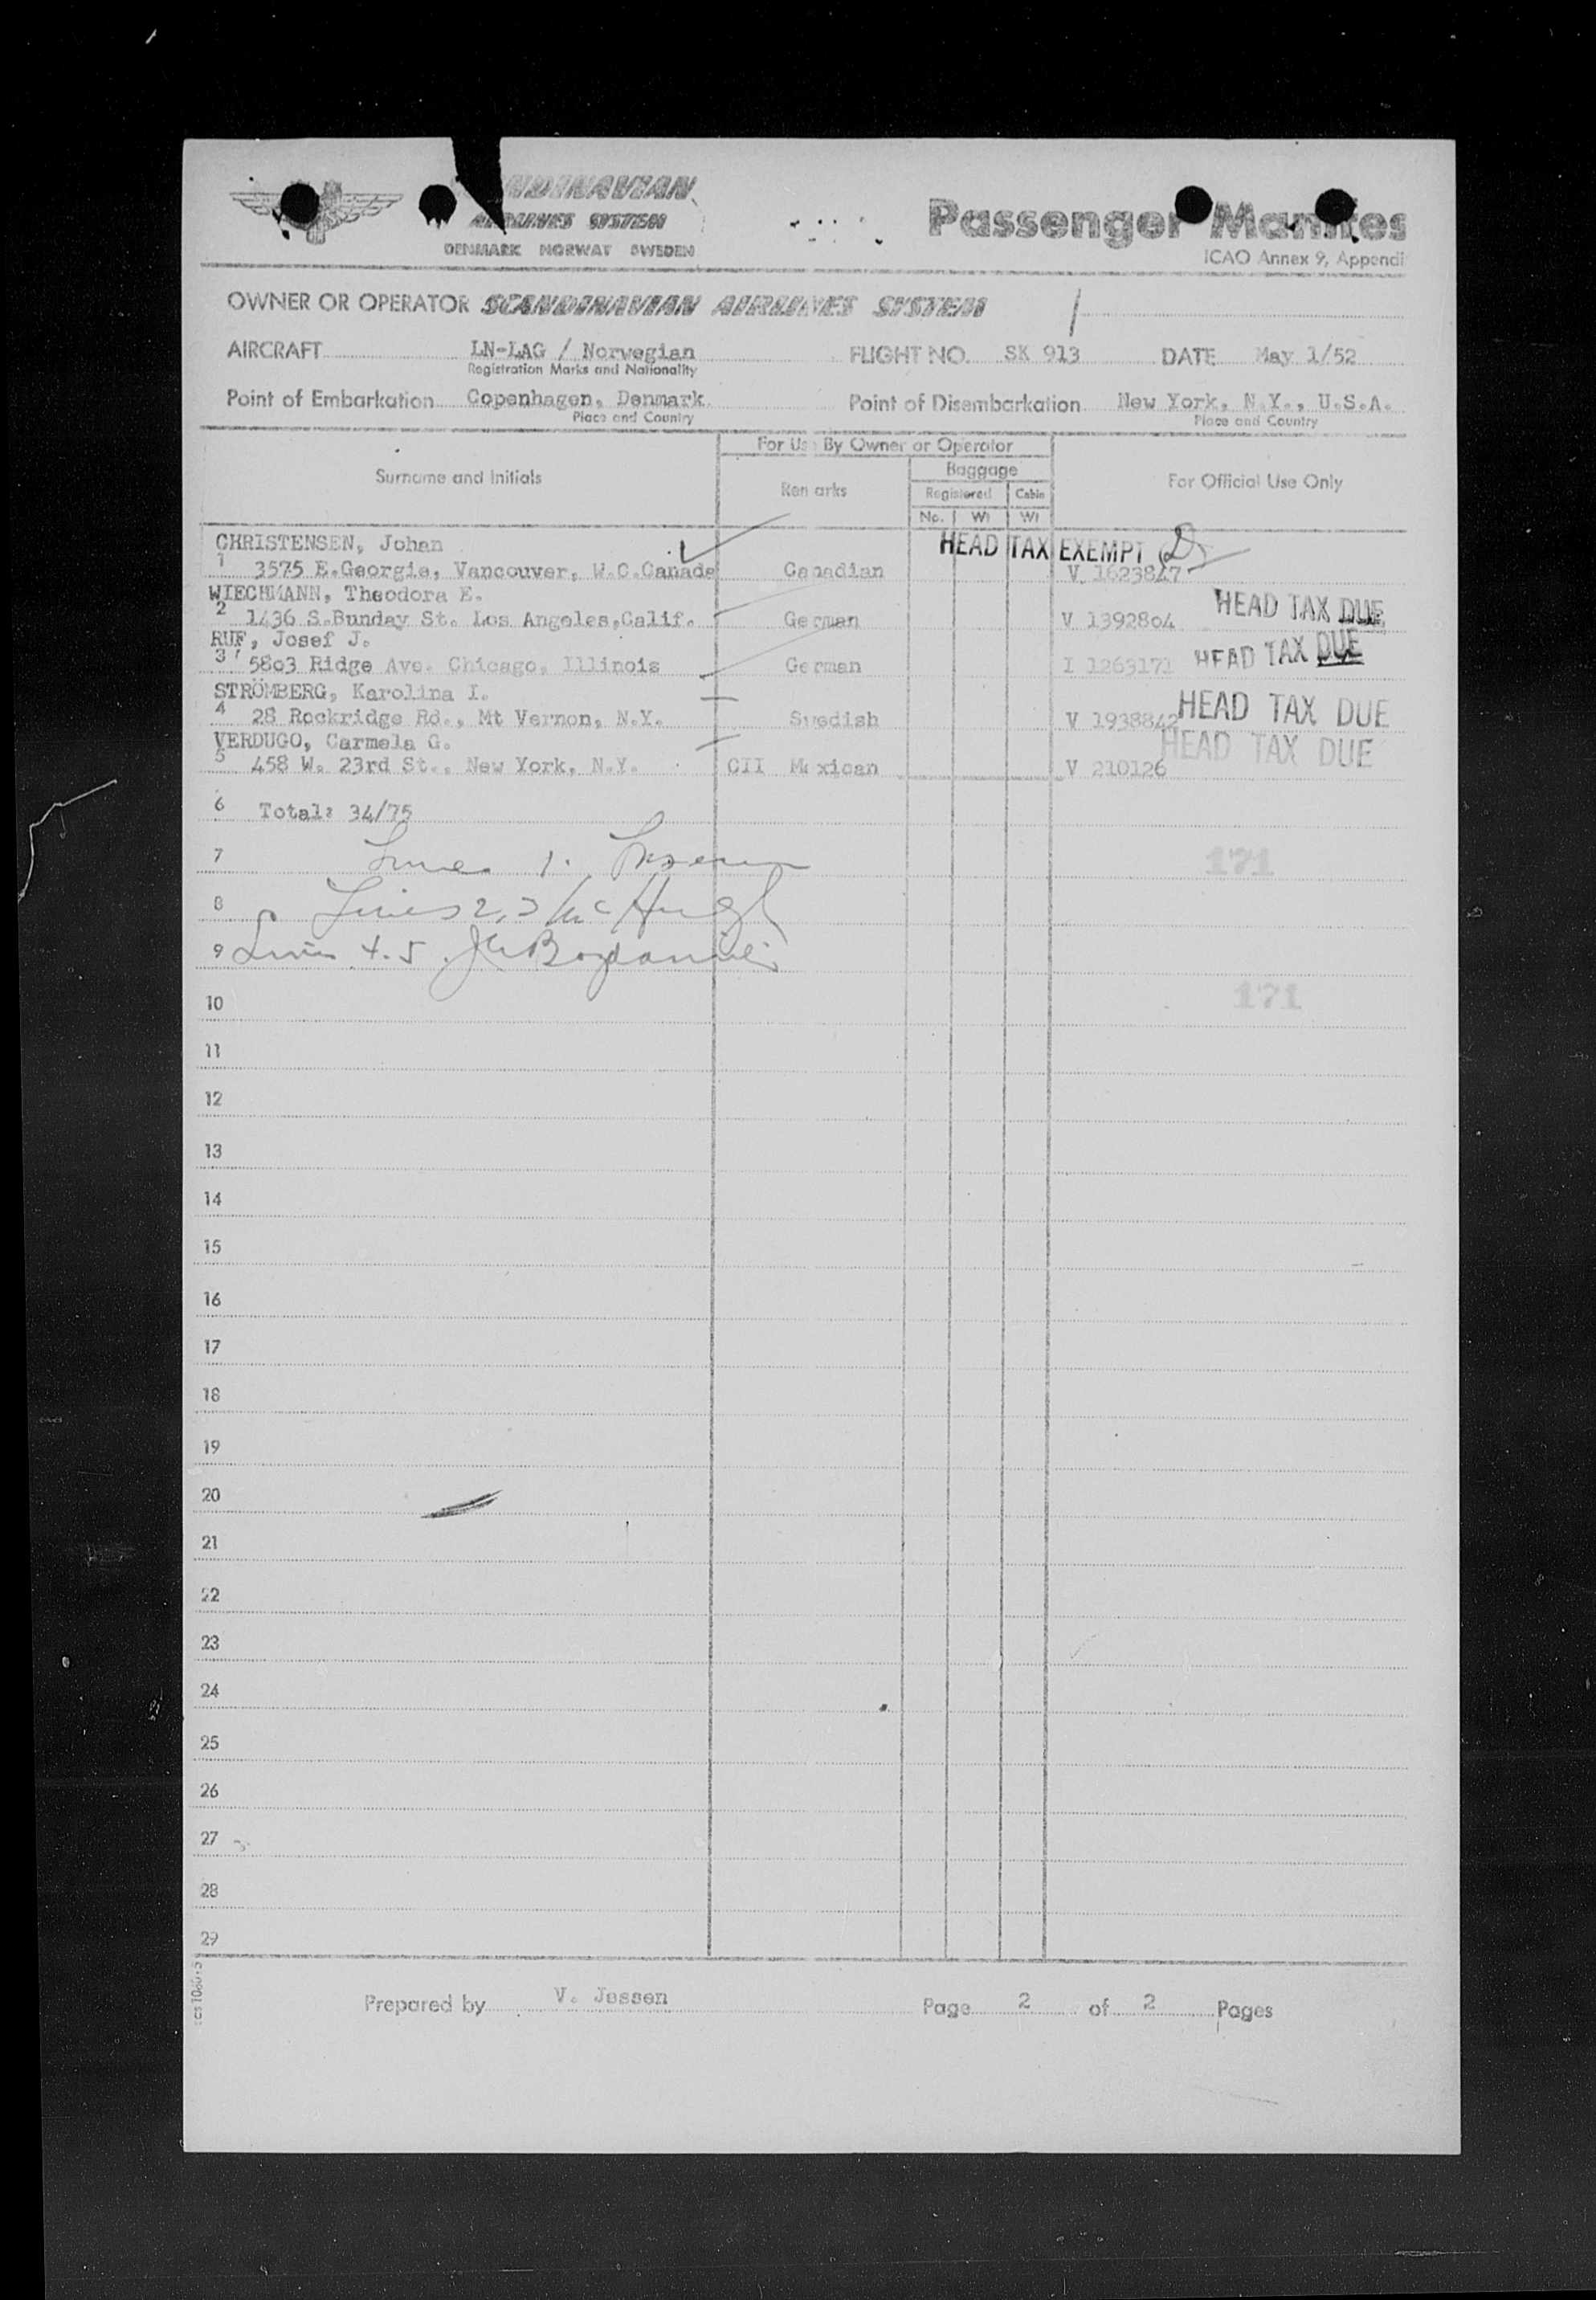 SCANDINAVIAN
AIRLINES SYSTEM
DENMARK NORWAY SWEDEN
Passenger Manifes
ICAO Annex 9, Appendi
OWNER OR OPERATOR SCANDINAVIAN AIRLINES SYSTEM
AIRCRAFT LN-LAG / Norwegian FLIGHT NO. SK 913 DATE May 1/52
Registration Marks and Nationality
Point of Embarkation Copenhagen, Denmark Point of Disembarkation New York, N.Y., U.S.A.
Place and Country Place and Country
For Use By Owner or Operator
Surname and Initials Remarks Baggage For Official Use Only
Registered Cabin
No. Wt Wt
CHRISTENSEN, Johan HEAD TAX EXEMPT
1 3575 E.Georgia, Vancouver, W.C.Canada Canadian V 1623847
WIECHMANN, Theodora E. HEAD TAX DUE
2 1436 S.Bunday St. Los Angeles,Calif. German V 13928o4
RUF, Josef J. HEAD TAX DUE
3 58o3 Ridge Ave. Chicago, Illinois German I 1263171
STRÖMBERG, Karolina I. HEAD TAX DUE
4 28 Rockridge Rd., Mt Vernon, N.Y. Swedish V 1938842
VERDUGO, Carmela G. HEAD TAX DUE
5 458 W. 23rd St., New York, N.Y. CII Mexican V 210126
6 Total: 34/75
7 1. 171
8 Lines 2,3 McHugh
9 Lines 4.5
10 171
11
12
13
14
15
16
17
18
19
20
21
22
23
24
25
26
27
28
29
Prepared by V. Jessen Page 2 of 2 Pages